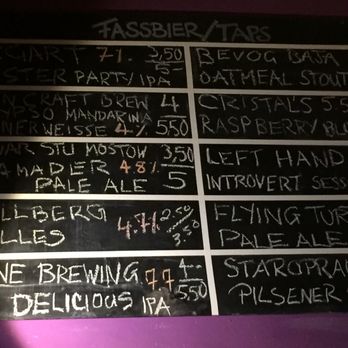 FASSBIER/TAPS
7%. 3,50
PARTY IPA 5-
CRAFT BREW 4
SO MANDARINA
WEISSE 4% 5,50
STU MOSTOW 3,50
MADER 4.8%
PALE ALE 5
LLBERG 4.7% 2.50
LLES 3.50
NE BREWING 7.7 4-
DELICIOUS IPA 5,50
BEVOG BAJA
OATMEAL STOUT
CRISTAL'S 5.5
RASPBERRY BL
LEFT HAND
INTROVERT SESS
FLYING TUR
PALE ALE
STAROPRA
PILSENER